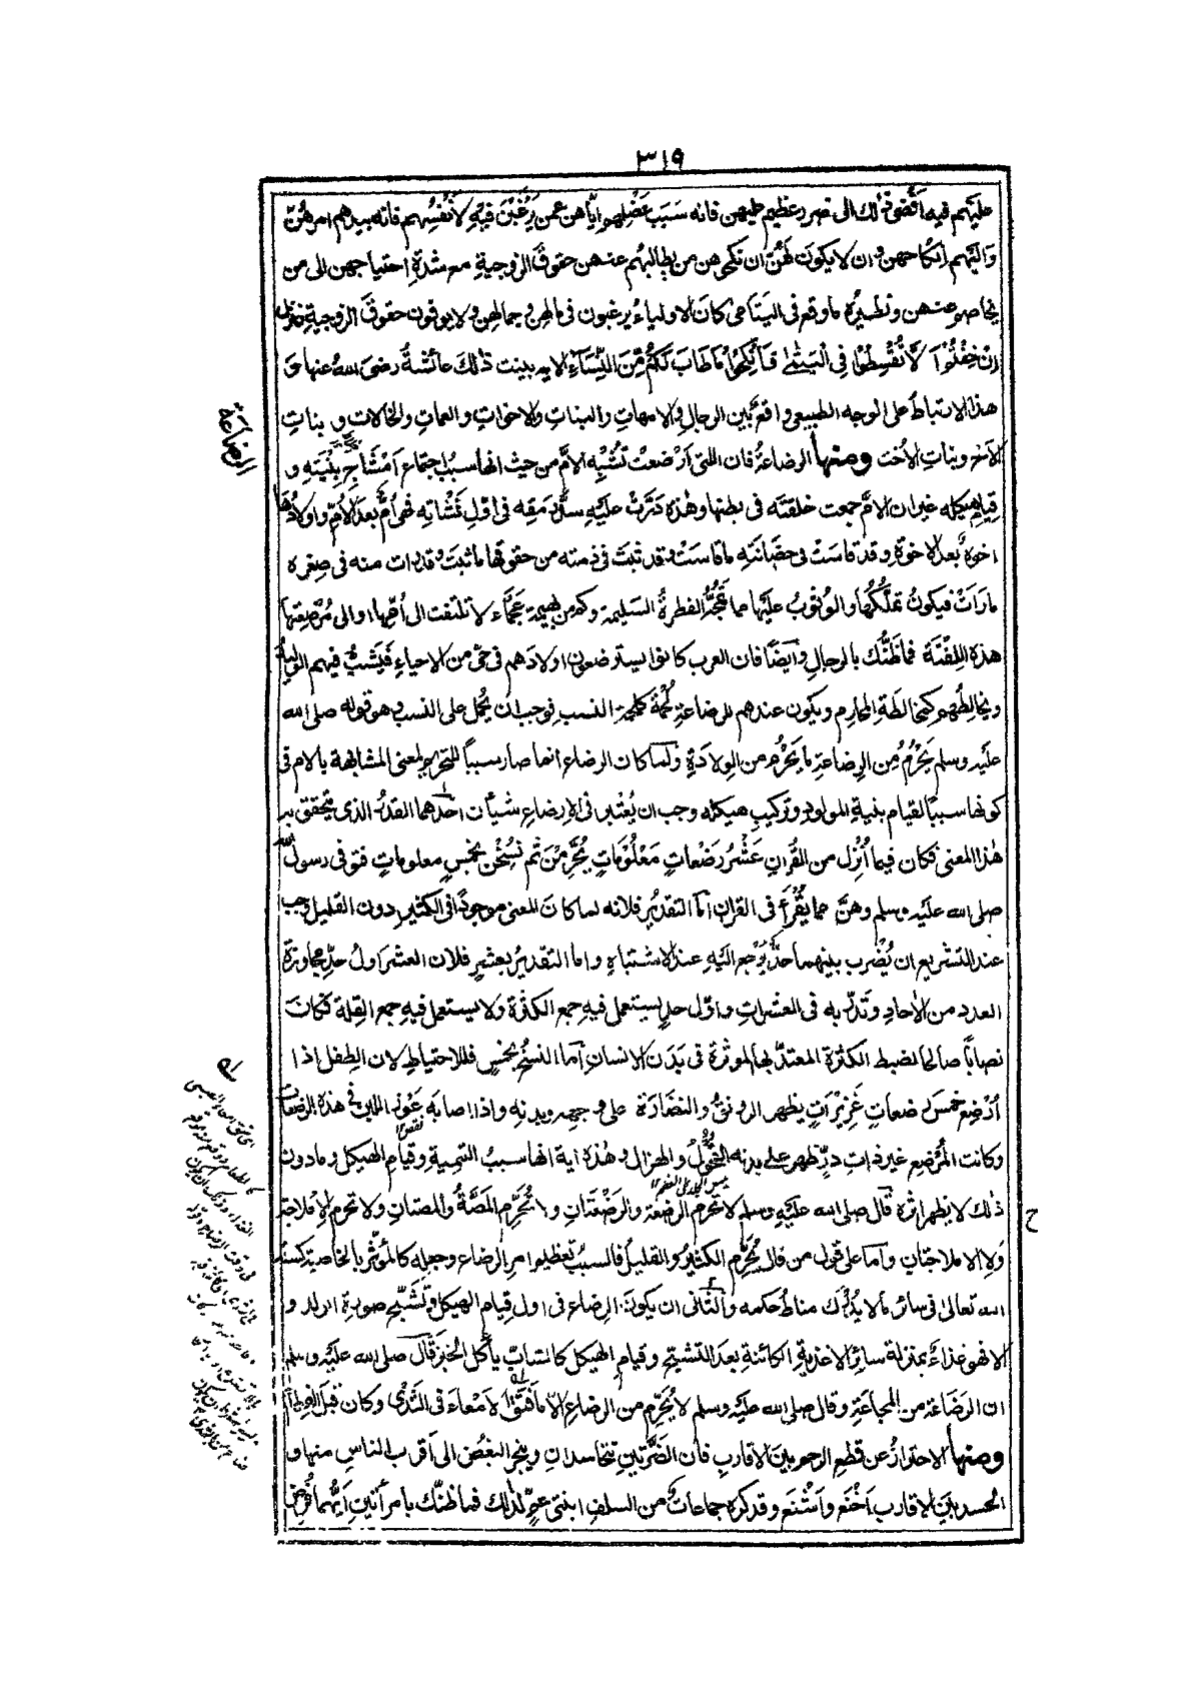 ٣١٩
عليهم فيه افضى ذلك الى ضرر عظيم عليهن فانه سبب عضلهم اياهن عمن يرغبن فيه لانفسهم فانه بيدهم امرهن
واليهم انكاحهن وان لا يكون لهن ان نكحوهن من يطالبهم عنهن حقوق الزوجية مع شدة احتياجهن الى من
يخاصم عنهن ونظيره ما وقع فى اليتامى كان الاولياء يرغبون فى مالهن وجمالهن ولا يوفون حقوق الزوجية فنزل
اِنْ خِفْتُمْ اَلَّا تُقْسِطُوْا فِى الْيَتٰمٰى فَانْكِحُوْا مَا طَابَ لَكُمْ مِّنَ النِّسَآءِ الايه بينت ذلك عائشةُ رضى الله عنها و
هذا الارتباط على الوجه الطبيعى واقع بين الرجالِ والامهاتِ والبناتِ والاخواتِ والعماتِ والخالات و بناتِ
الاخ وبناتِ الاُخت ومنها الرضاعةُ فان اللتى اَرْضعتْ تشبه الامَّ من حيث انها سببُ اجتماع اَمْشَاجِ بِنْيَتِهِ و
قيام هيكله غير ان الامَّ جمعت خلقتَه فى بطنها وهذه دَرَّتْ عليه سدَّ رَمَقِه فى اوّل نَشْاتِه فهى اُمٌّ بعد الاُمّ واولادُها
اخوةٌ بعد الاخوةِ وقد قاسَتْ فى حضانتِه ما قاسَتْ وقد ثبت فى ذمته من حقوقها ما ثبت وقد رات منه فى صِغره
ما رَاَتْ فيكونُ تملُّكُها والوُثوبُ عليها مما تَمُجُّه الفطرةُ السليمة وكم من بهيمةٍ عَجْماء لا تلتفت الى اُمِّها او الى مُرْضِعتها
هذه اللِفْتَة فما ظَنُّك بالرجالِ وايضًا فان العرب كانوا يسترضعون اولادهم فى حىّ من الاحياءِ فيَشِبُّ فيهم الوليدُ
ويخالطُهم كمخالطةِ المحارم ويكون عندهم للرضاعةِ لُحْمة كلحمة النسب فوجب ان يُحْمل على النسب وهو قوله صلى الله
عليه وسلم يَحْرُمُ مِن الرِضاعةِ ما يَحْرُم من الوِلادَةِ ولما كان الرضاع انما صار سببًا للتحريم لمعنى المشابهة بالام فى
كونها سببًا لقيام بنيةِ المولود وتركيبِ هيكله وجب ان يُعْتبر فى الارضاع شيأن احدهما القدرُ الذى يتحقق به
هذا المعنى فكان فيما اُنْزِل من القُرانِ عَشْرُ رَضْعاتٍ مَعْلُوْمَاتٍ يُحَرِّمْنَ ثم نُسِخْن بخمسٍ معلوماتٍ فتوفى رسول الله
صلى الله عليه وسلم وهنَّ مما يُقْرَءُ فى القران اما التقديرُ فلانه لما كان المعنى موجودًا فى الكثير دون القليل وجب
عند التشريع ان يُضرب بينهما حدٌّ يُرْجع اليه عند الاشتباهِ واما التقديرُ بعشرٍ فلان العشر اولُ حدِّ مجاوزةِ
العدد من الاحادِ وتَدرّبه فى العشراتِ واوّل حدٍ يستعمل فيه جمع الكثرة ولا يستعمل فيه جمع القِلة فكان
نصابًا صالحًا لضبط الكثرةِ المعتدّ بها المؤثرة فى بَدَن الانسان اَما النسخُ بخمسٍ فللاحتياطِ لان الطفل اذا
اُرْضِع خمسَ رضعاتٍ غزيراتٍ يظهر الرونقُ والنضارة على وجهه وبدنه واذا اصابه عَوَزُ اللبن فى هذه الرضعات
وكانت المُرْضِع غيرَ ذاتِ درٍّ ظهر على بدنه القُحُول والهزال وهذه اية انها سببُ التنمية وقيامِ الهيكل وما دون
ذلك لا يظهر اثرُه قال صلى الله عليه وسلم لا تُحَرِّم الرضعة والرَضْعَتَانِ ولا تُحَرِّم المَصَّةُ والمصتانِ ولا تحرم الاِمْلاجة
ولا الاملاجتانِ واما على قول من قال يُحَرِّم الكثيرُ والقليلُ فالسببُ تعظيم امرِ الرضاع وجعلُه كالمؤثّر بالخاصيةِ كسنة
الله تعالى فى سائر ما لا يُدْرَك مناطُ حكمه والثانى ان يكون الرضاع فى اول قيام الهيكل وتَشَبُّحِ صورة الولد و
الا فهو غذاءٌ بمنزلة سائرِ الاغذيةِ الكائنةِ بعد التشبّح وقيامِ الهيكل كالشابِّ يأكل الخبز قال صلى الله عليه وسلم
ان الرَضَاعة من المجاعةِ وقال صلى الله عليه وسلم لا يُحَرِّم من الرضاعِ الا ما فَتَقَ الاَمْعاءَ فى الثَدْىِ وكان قبل الفطام
ومنها الاحترازُ عن قطعِ الرحم بين الاقاربِ فان الضَرَّتينِ تتحاسدانِ وينجر البغضُ الى اقرب الناسِ منهما و
الحسد بين الاقارب اَخْنَع واَشْنع وقد كرِه جماعاتٌ من السلفِ ابنتى عمٍّ لذلك فما ظنّك بامرأتينِ اَيُّهما فُرِض